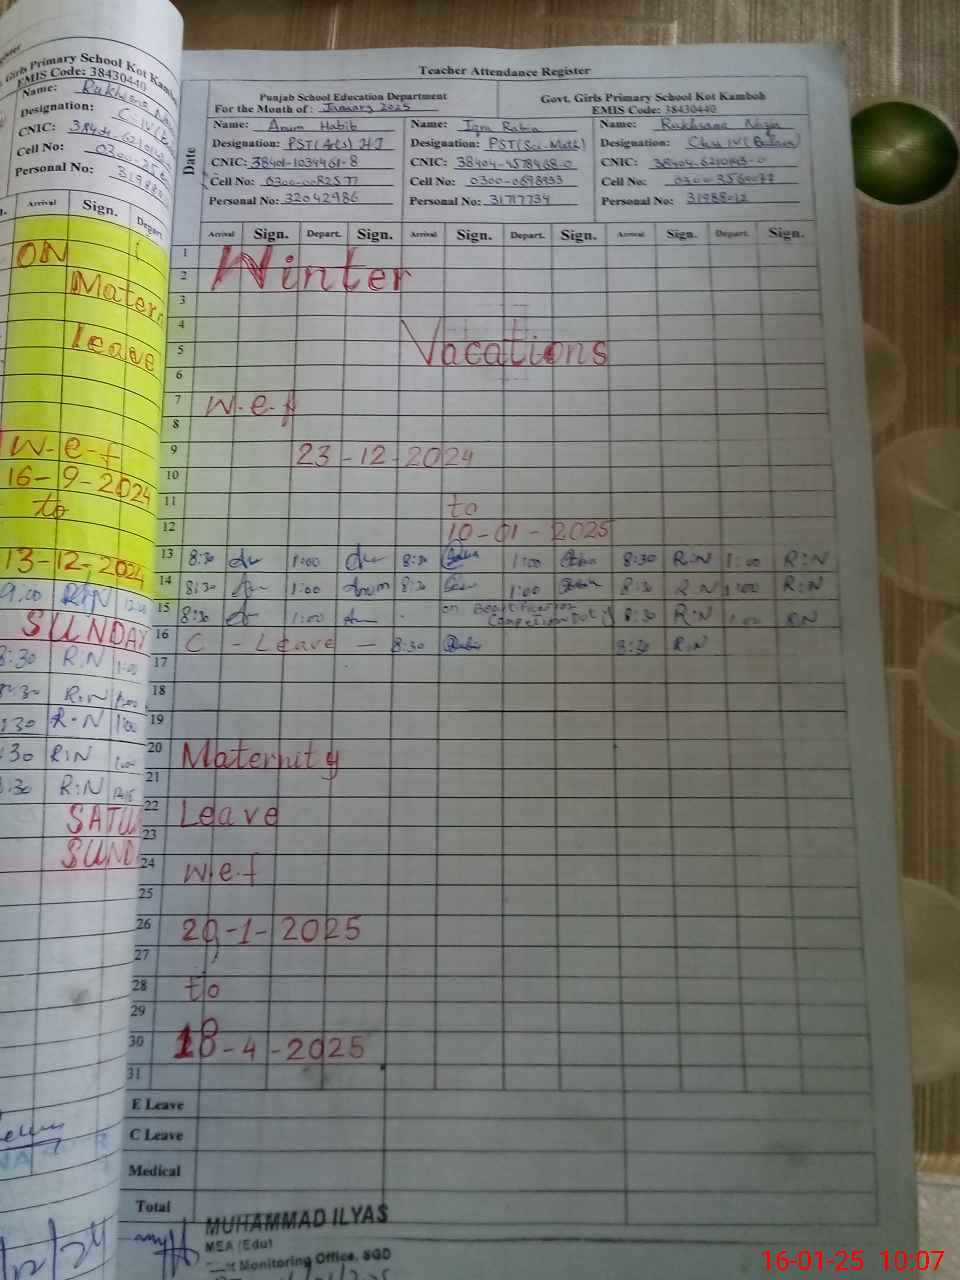 Girls Primary School Kot Kamboh
EMIS Code: 38430440
Name: Rukhsana
Designation:
CNIC:
Cell No:
Personal No:
Arrival Sign. Depart.
ON
Matern
leave
W-e-f
16-9-2024
to
13-12-2024
9:00 R:N
SUNDAY
8:30 R:N 1:00
8:30 R:N
8:30 R:N 1:00
8:30 R:N
8:30 R:N
SATU
SUND
Teacher Attendance Register
Punjab School Education Department
For the Month of: January 2025
Govt. Girls Primary School Kot Kamboh
EMIS Code: 38430440
Date
Name: Anum Habib Name: Iqra Rabia Name: Rukhsana
Designation: PST(Arts) H.T Designation: PST(Sci. Math) Designation: Class IV
CNIC: 38401-1034461-8 CNIC: 38404-4578468-0 CNIC: 38404-6210143-0
Cell No: 0300-0082577 Cell No: 0300-0698933 Cell No:
Personal No: 32042986 Personal No: 31717734 Personal No:
Arrival Sign. Depart. Sign. Arrival Sign. Depart. Sign. Arrival Sign. Depart. Sign.
1
2 Winter
3
4
5 Vacations
6
7 W.e.f
8
9 23-12-2024
10
11 to
12 10-01-2025
13 8:30 1:00 8:30 1:00 8:30 R:N 1:00 R:N
14 8:30 1:00 Anum 8:30 1:00 8:30 R:N 1:00 R:N
15 8:30 1:00 on Beautification Competion Duty 8:30 R:N 1:00 R:N
16 C - Leave - 8:30 8:30 R:N
17
18
19
20 Maternity
21
22 Leave
23
24 w.e.f
25
26 20-1-2025
27
28 to
29
30 18-4-2025
31
E Leave
C Leave
Medical
Total
MUHAMMAD ILYAS
MEA (Edu)
Monitoring Office, SGD
16-01-25 10:07